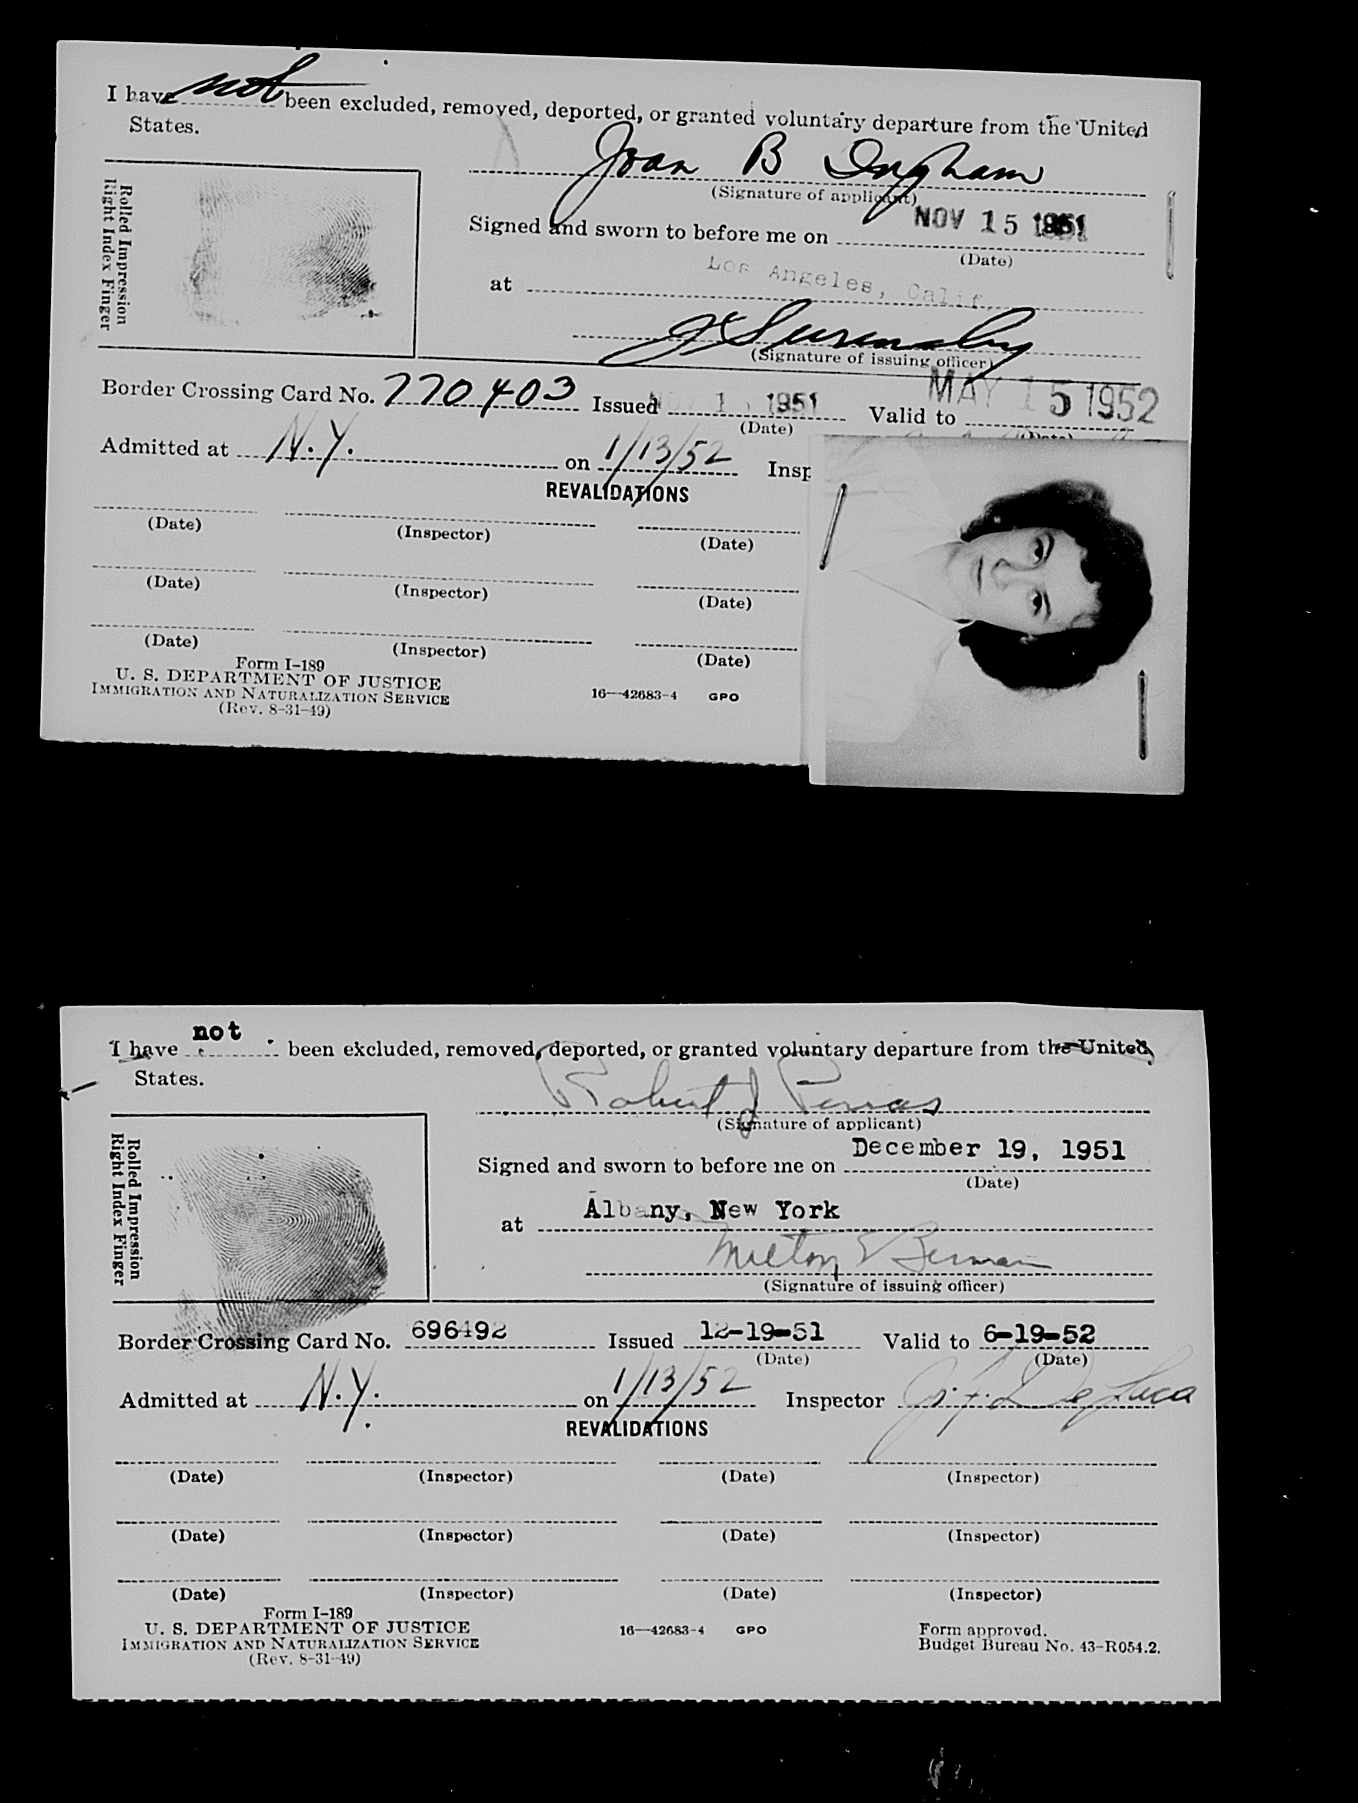 I have not been excluded, removed, deported, or granted voluntary departure from the United
States.
Joan B Ingham
(Signature of applicant)
Signed and sworn to before me on NOV 15 1951
(Date)
at Los Angeles, Calif.
(Signature of issuing officer)
Rolled Impression
Right Index Finger
Border Crossing Card No. 770403 Issued 1951 Valid to MAY 15 1952
(Date)
Admitted at N.Y. on 1/13/52 Insp
REVALIDATIONS
(Date) (Inspector) (Date)
(Date) (Inspector) (Date)
(Date) (Inspector) (Date)
Form I-189
U. S. DEPARTMENT OF JUSTICE
IMMIGRATION AND NATURALIZATION SERVICE 16—42683-4 GPO
(Rev. 8-31-49)
I have not been excluded, removed, deported, or granted voluntary departure from the United
States.
Robert J Perras
(Signature of applicant)
Signed and sworn to before me on December 19, 1951
(Date)
at Albany, New York
Milton E Berman
(Signature of issuing officer)
Rolled Impression
Right Index Finger
Border Crossing Card No. 696492 Issued 12-19-51 Valid to 6-19-52
(Date) (Date)
Admitted at N.Y. on 1/13/52 Inspector De Luca
REVALIDATIONS
(Date) (Inspector) (Date) (Inspector)
(Date) (Inspector) (Date) (Inspector)
(Date) (Inspector) (Date) (Inspector)
Form I-189
U. S. DEPARTMENT OF JUSTICE 16—42683-4 GPO Form approved.
IMMIGRATION AND NATURALIZATION SERVICE Budget Bureau No. 43-R054.2.
(Rev. 8-31-49)